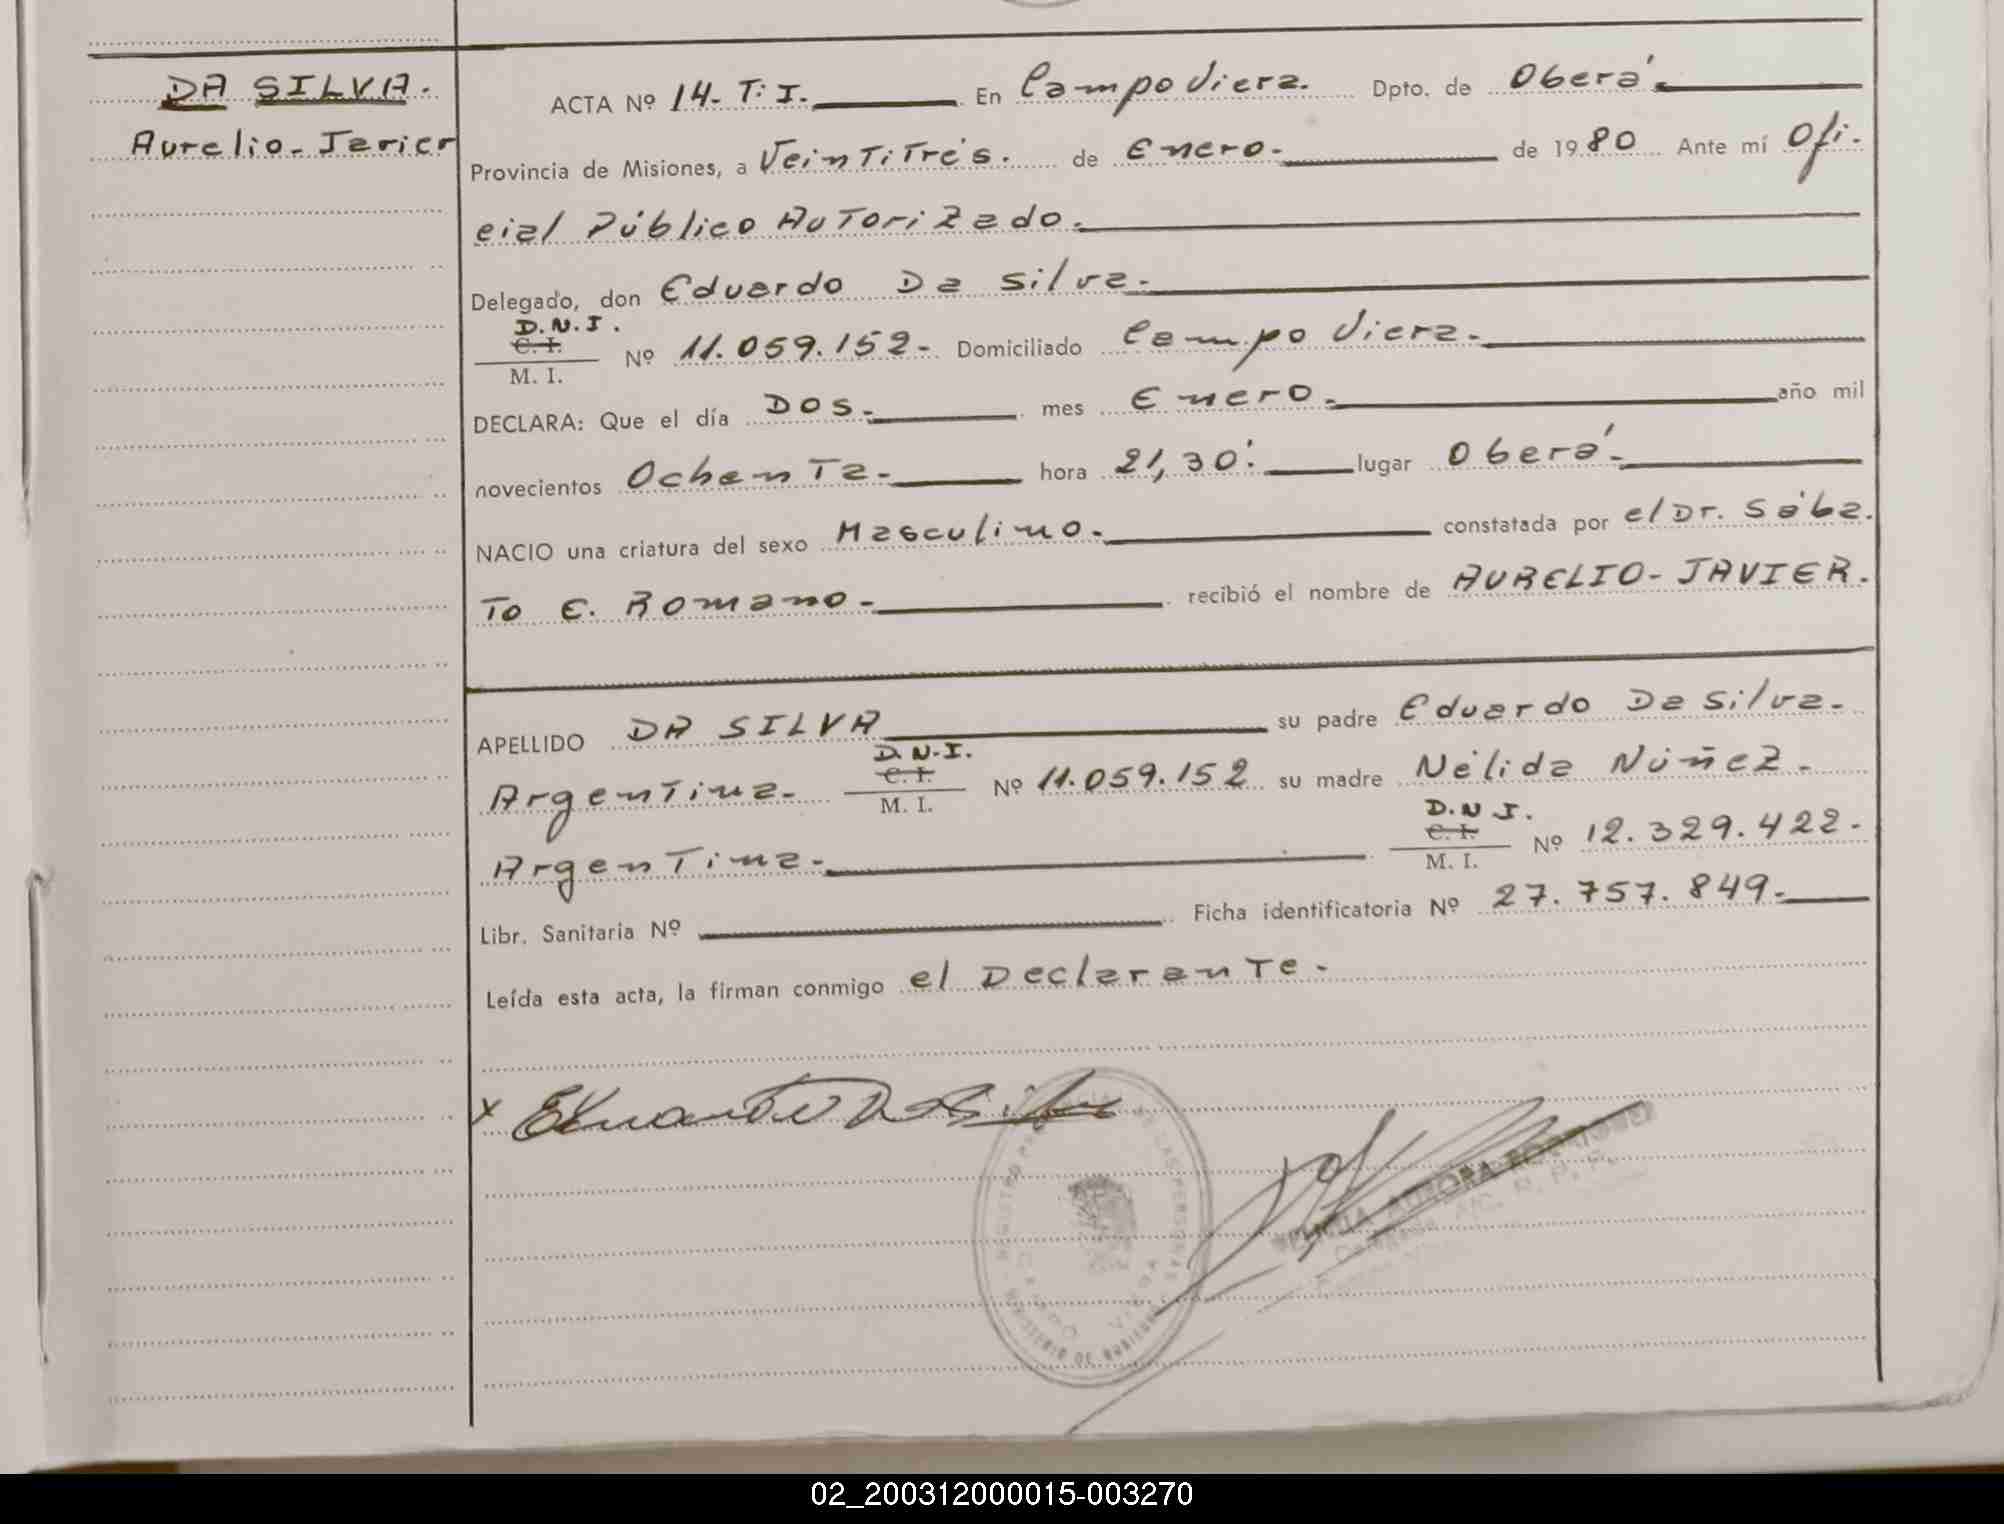 DA SILVA.
Aurelio-Javier
ACTA Nº 14- T: I. En Campo Viera. Dpto. de Oberá.
Provincia de Misiones, a Veintitrés. de Enero. de 1980 Ante mí Ofi-
cial Público Autorizado.
Delegado, don Eduardo Da Silva.
D.N.I.
C. I.
M. I. Nº 11.059.152- Domiciliado Campo Viera.
DECLARA: Que el día Dos. mes Enero. año mil
novecientos Ochenta- hora 21,30. lugar Oberá.
NACIO una criatura del sexo Masculino. constatada por el Dr. Sába.
to E. Romano- recibió el nombre de AURELIO-JAVIER.
APELLIDO DA SILVA su padre Eduardo Da Silva.
Argentina- D.N.I. C. I. M. I. Nº 11.059.152 su madre Nélida Núñez.
Argentina- D.N.I. C. I. M. I. Nº 12.329.422-
Libr. Sanitaria Nº Ficha identificatoria Nº 27.757.849-
Leída esta acta, la firman conmigo el Declarante.
x Eduardo Da Silva
AURORA RODRIGUEZ
REGISTRO DE LAS PERSONAS
CAMPO VIERA
MINISTERIO DE
02_200312000015-003270